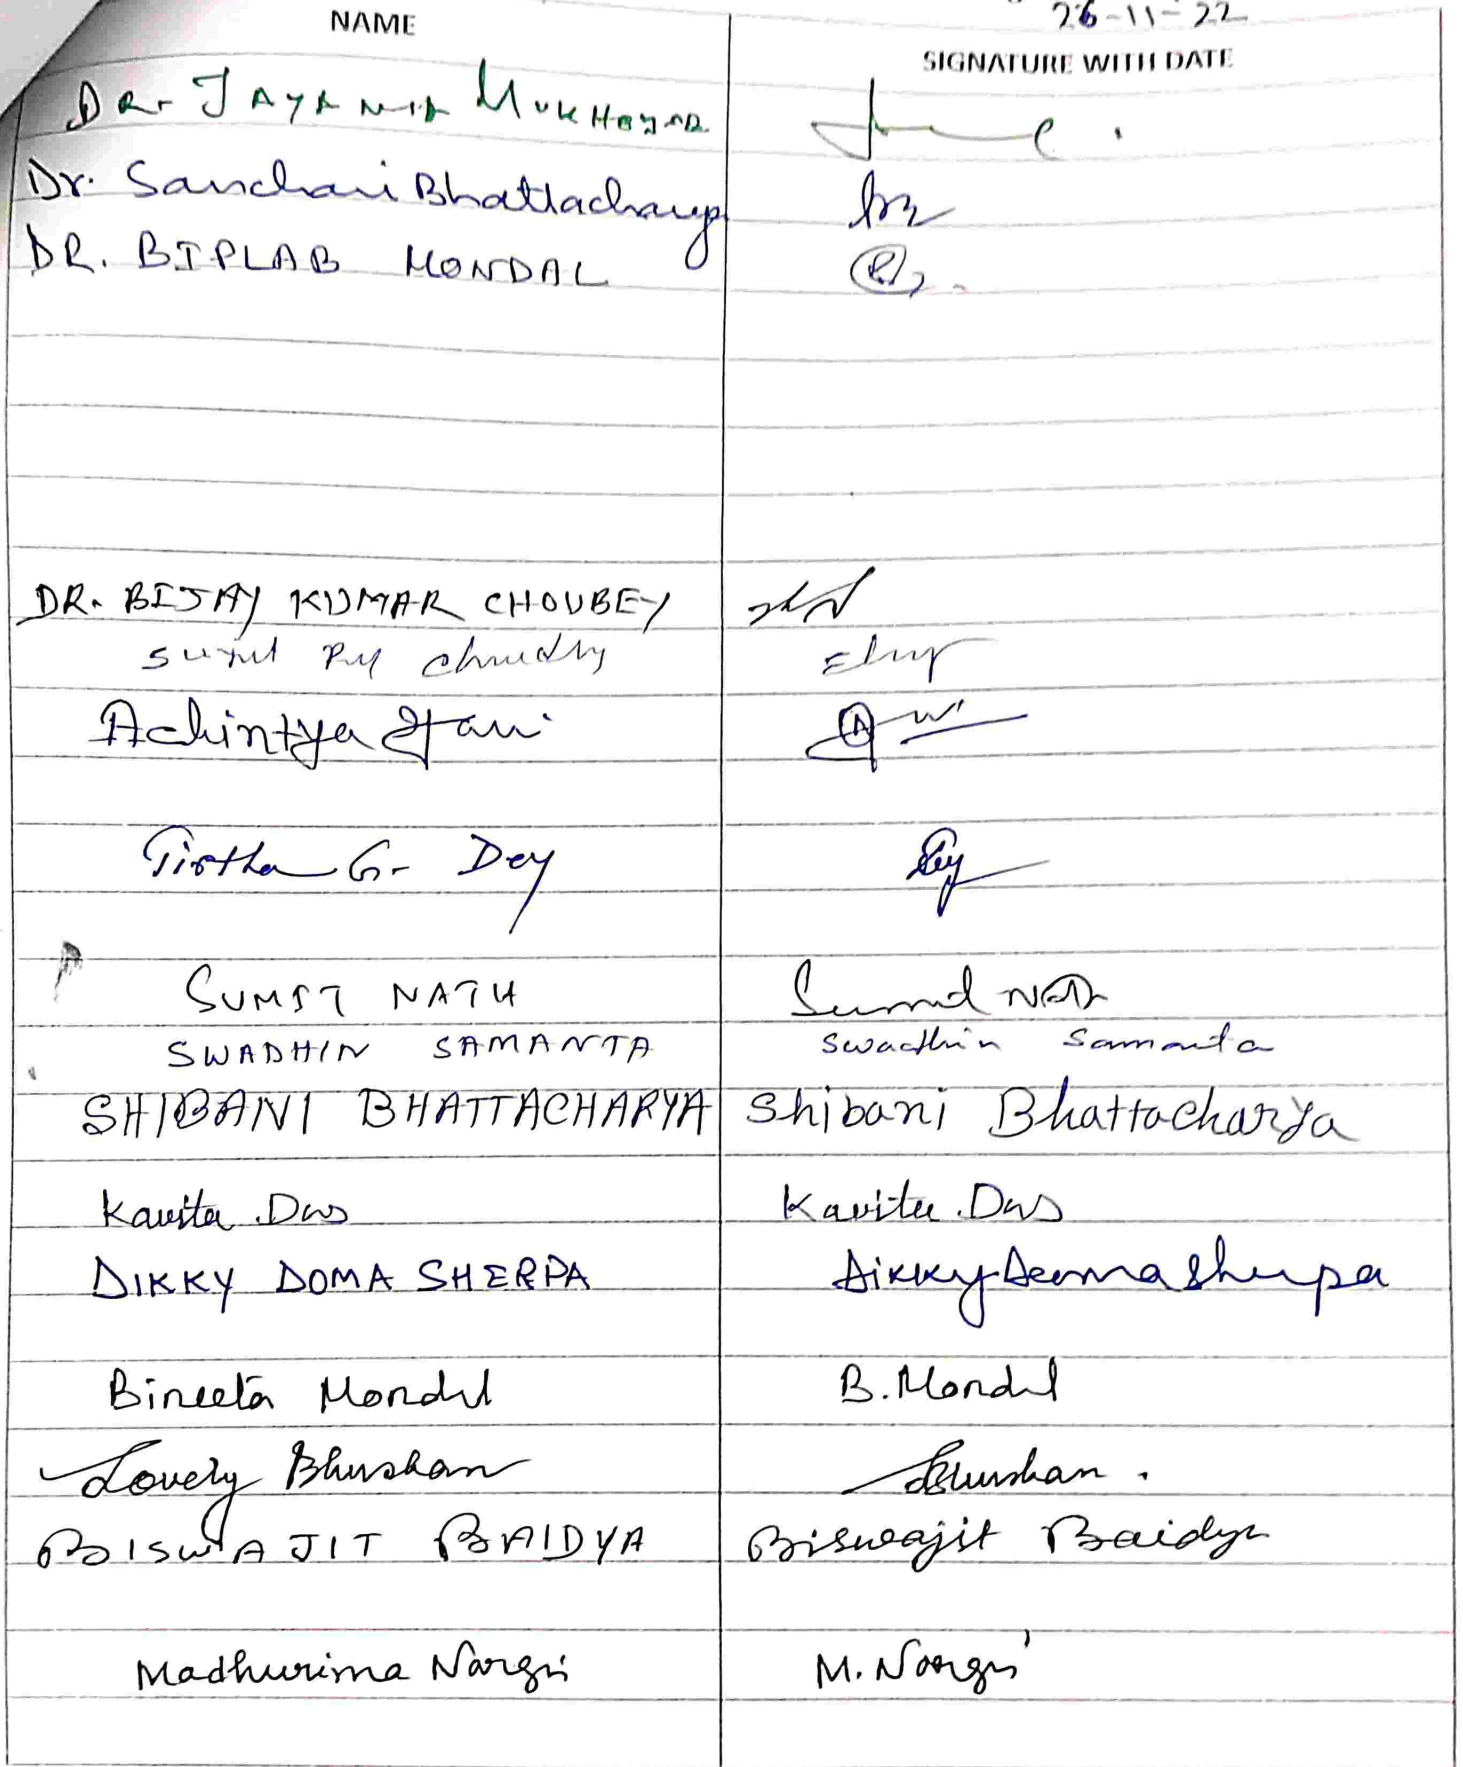 26-11-22
NAME
SIGNATURE WITH DATE
DR. JAYANTA
Dr. Sanchari Bhattacharya
DR. BIPLAB MONDAL
DR. BIJAY KUMAR CHOUBEY
Achintya
Tirtha G. Dey
SUMIT NATH Sumit Nath
SWADHIN SAMANTA Swadhin Samanta
SHIBANI BHATTACHARYA Shibani Bhattacharya
Kavita Das Kavita Das
DIKKY DOMA SHERPA Dikky Doma Sherpa
Bineeta Mondal B. Mondal
Lovely Bhushan Bhushan
BISWAJIT BAIDYA Biswajit Baidya
Madhurima Nargis M. Nargis